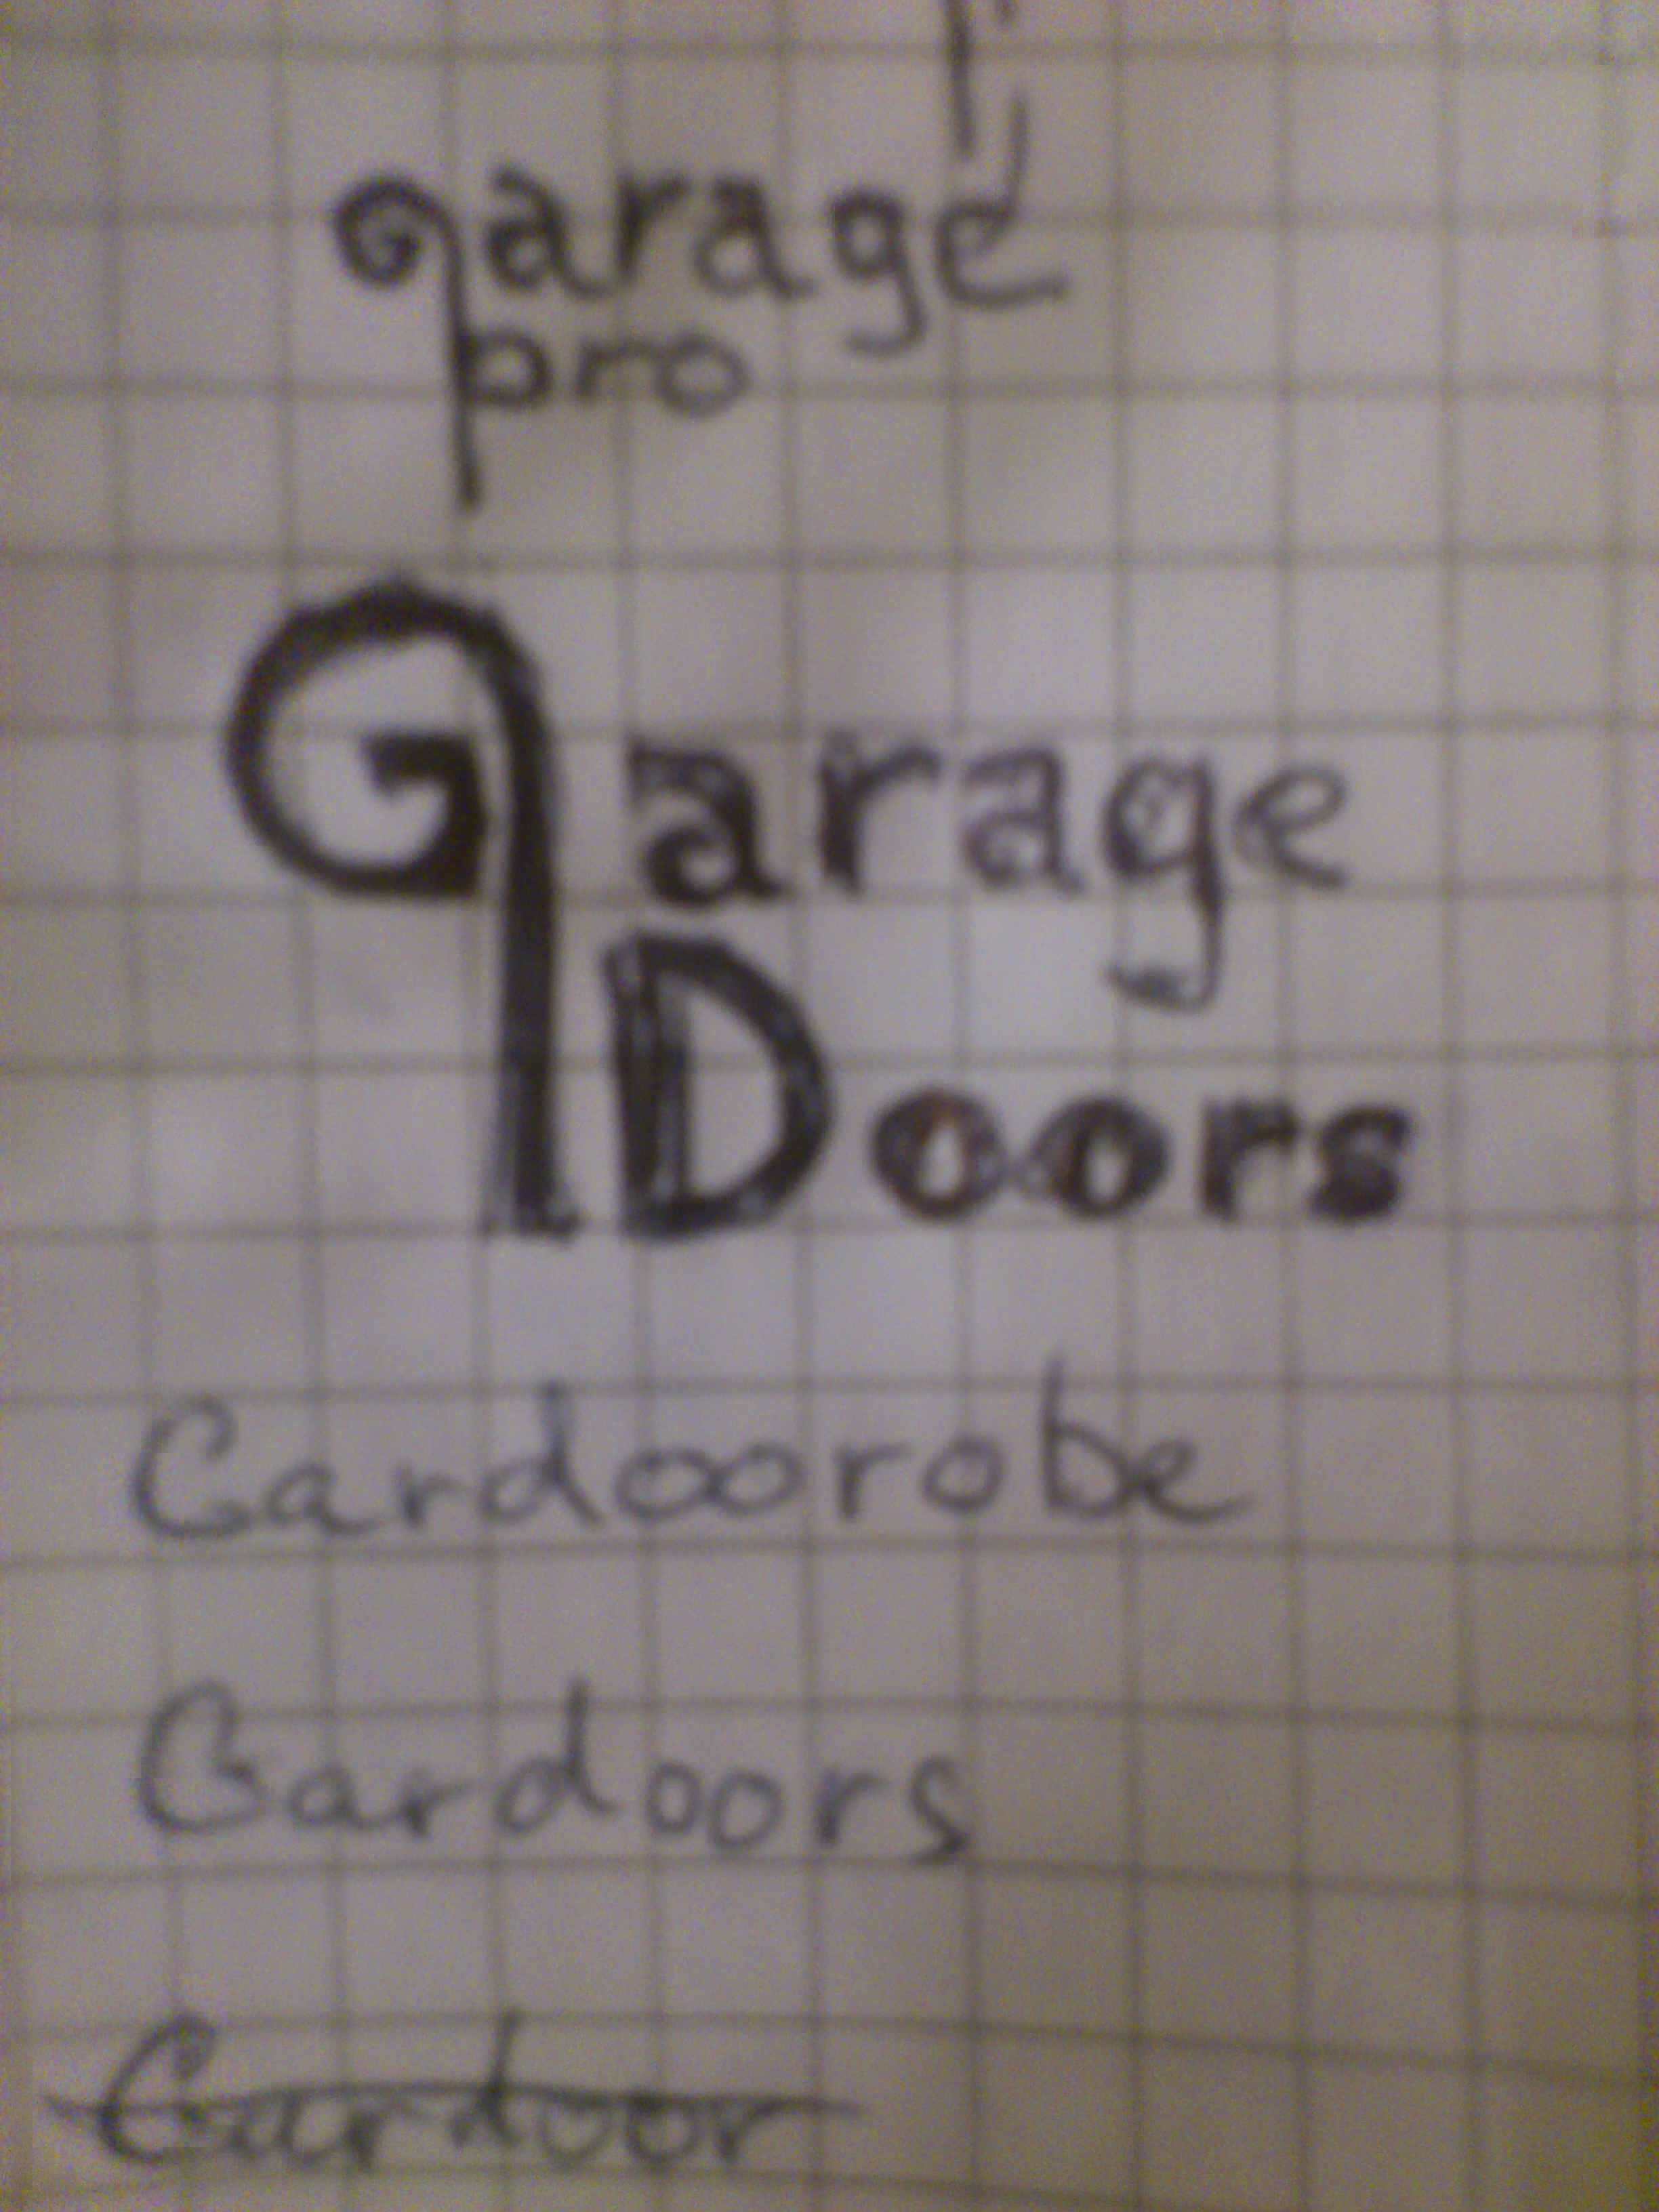 garage
pro
Garage
Doors
Cardoorobe
Gardoors
Gardoor